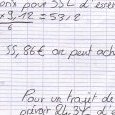 prix pour 35L d'essen
× 9,12 = 53,2
6
55,86€ on peut ach
Pour un trajet de
prévoir 24,34€ d'e